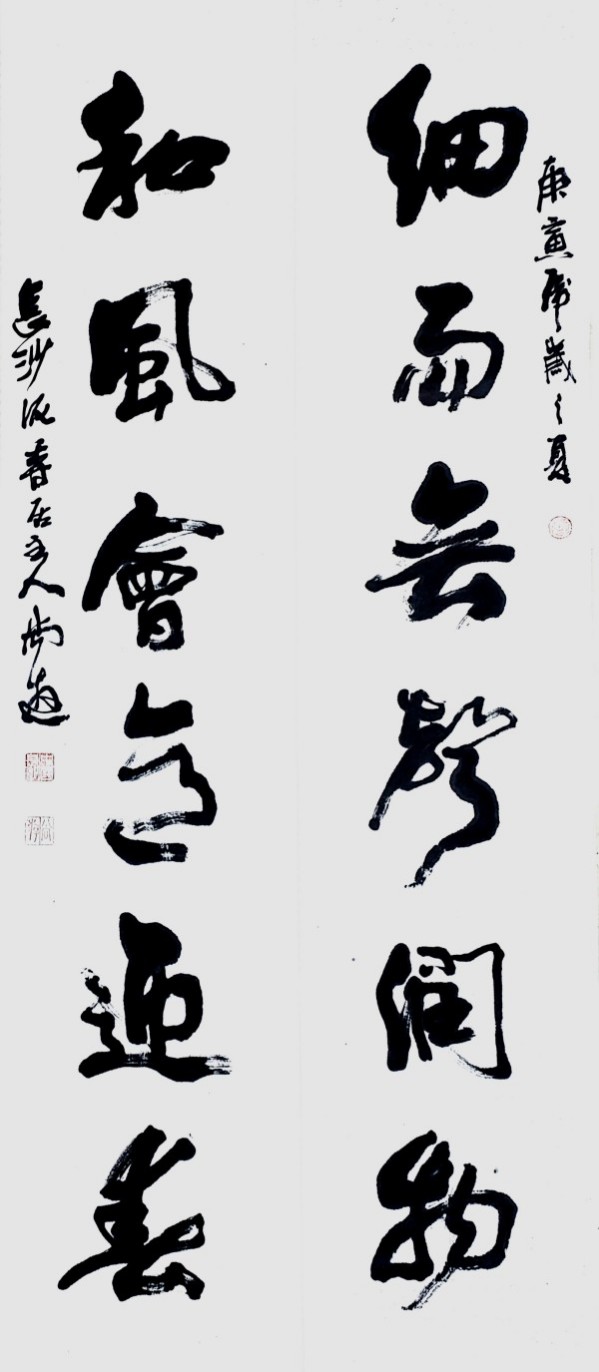 庚寅虎歲之夏
細雨無聲潤物
和風會意迎春
長沙居主人